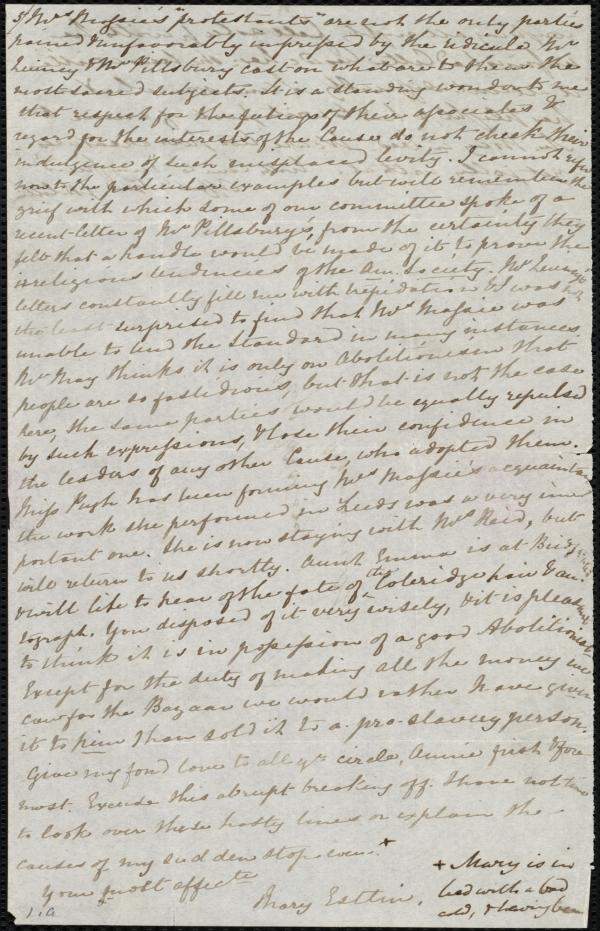 5/ Mrs Massie's "protestants" are not the only parties
pained & unfavorably impressed by the ridicule Mr
Quincy & Mr Pillsbury cast on what are to them the
most sacred subjects. It is a standing wonder to me
that respect for the feelings of their associates &
regard for the interests of the Cause do not check their
indulgence of such misplaced levity. I cannot refer
now to the particular examples but well remember the
grief with which some of our committee spoke of a
recent letter of Mr Pillsbury's, from the certainty they
felt that a handle would be made of it to prove the
irreligious tendencies of the Am. Society. Mr Quincy's
letters constantly fill me with trepidation & I was not
the least surprised to find that Mrs Massie was
unable to lend the Standard in many instances
Mr May thinks it is only on Abolitionism that
people are so fastidious, but that is not the case
here, the same parties would be equally repulsed
by such expressions, & lose their confidence in
the leaders of any other Cause, who adopted them.
Miss Pugh has been forming Mrs Massie's acquaintance
the work she performed in Leeds was a very im
portant one. She is now staying with Mrs Reid, but
will return to us shortly. Aunt Emma is at
& will like to hear of the fate of the Coleridge hair & au
tograph. You disposed of it very wisely, & it is pleasant
to think it is in possession of a good Abolitionist
Except for the duty of making all the money we
can for the Bazaar we would rather have given
it to him than sold it to a pro-slavery person.
Give my fond love to all yr circle, Annie first & fore
most. Excuse this abrupt breaking off. I have not time
to look over these hasty lines or explain the
causes of my sudden stop
Your most affecte
Mary Estlin.
+ Mary is in
bed with a bad
cold, & having been